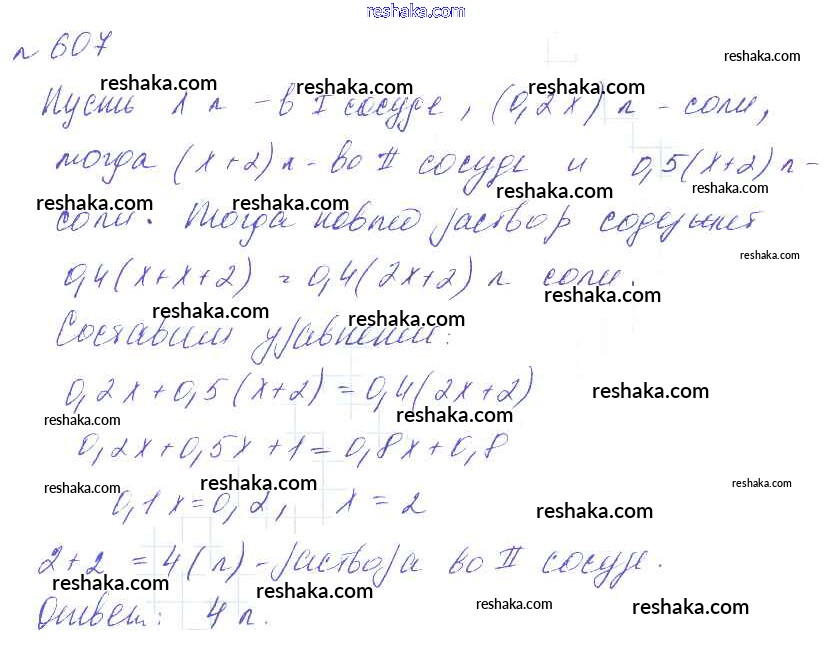 reshaka.com
№ 607
reshaka.com
reshaka.com reshaka.com reshaka.com
Пусть x л - в I сосуде, (0,2x) л - соли,
тогда (x+2) л - во II сосуде и 0,5(x+2) л -
reshaka.com reshaka.com reshaka.com reshaka.com
соли. Тогда новый раствор содержит
reshaka.com
0,4(x+x+2) = 0,4(2x+2) л соли.
reshaka.com reshaka.com reshaka.com
Составим уравнение:
0,2x+0,5(x+2)=0,4(2x+2)
reshaka.com reshaka.com reshaka.com
0,2x+0,5x+1=0,8x+0,8
reshaka.com reshaka.com reshaka.com
0,1x=0,2, x=2
reshaka.com
2+2=4(л)-раствора во II сосуде.
reshaka.com reshaka.com
Ответ: 4 л.
reshaka.com reshaka.com